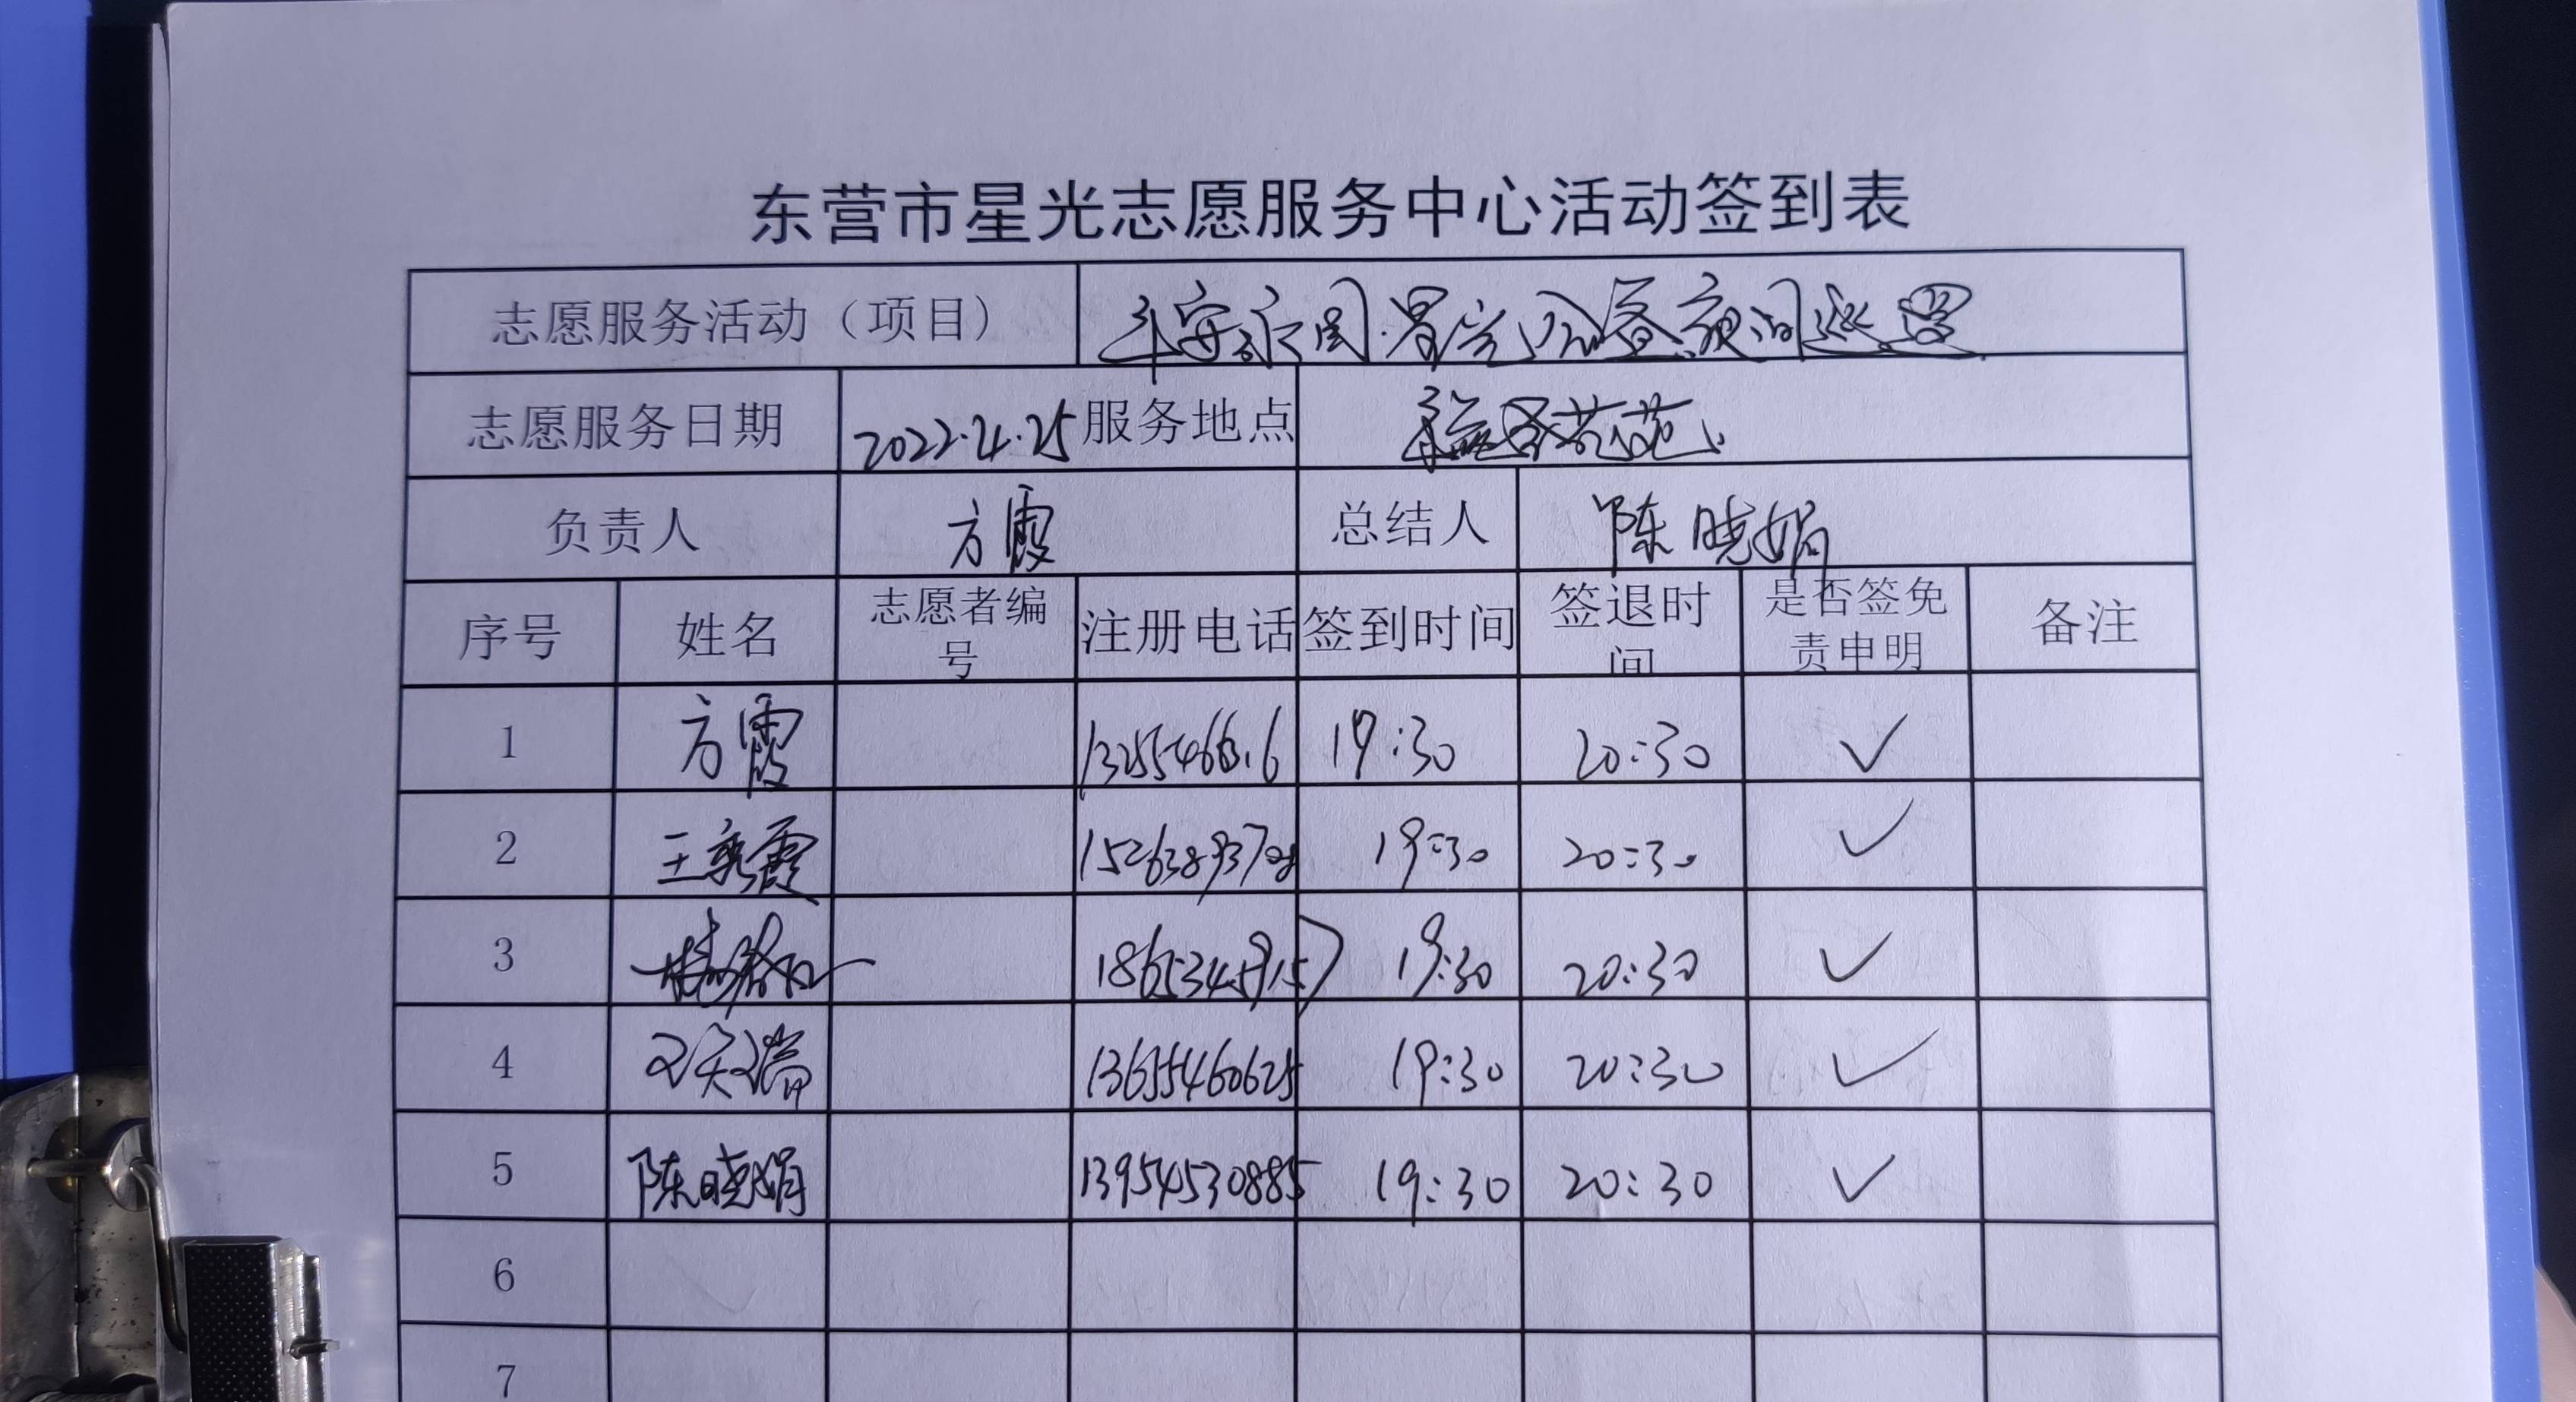 东营市星光志愿服务中心活动签到表
志愿服务活动（项目） 平安家园·星光公益夜间巡逻
志愿服务日期 2022.4.25 服务地点
负责人 方霞 总结人 陈晓娟
序号 姓名 志愿者编号 注册电话 签到时间 签退时间 是否签免责申明 备注
1 方霞 19:30 20:30 ✓
2 王秀霞 19:30 20:30 ✓
3 19:30 20:30 ✓
4 13655460625 19:30 20:30 ✓
5 陈晓娟 13954530885 19:30 20:30 ✓
6
7